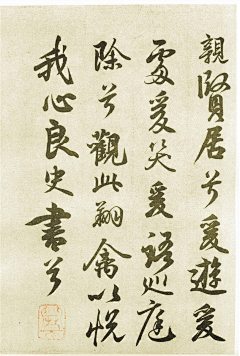 親賢居兮爰遊爰
處爰笑爰語巡庭
除兮觀此翔禽以悅
我心良史書兮